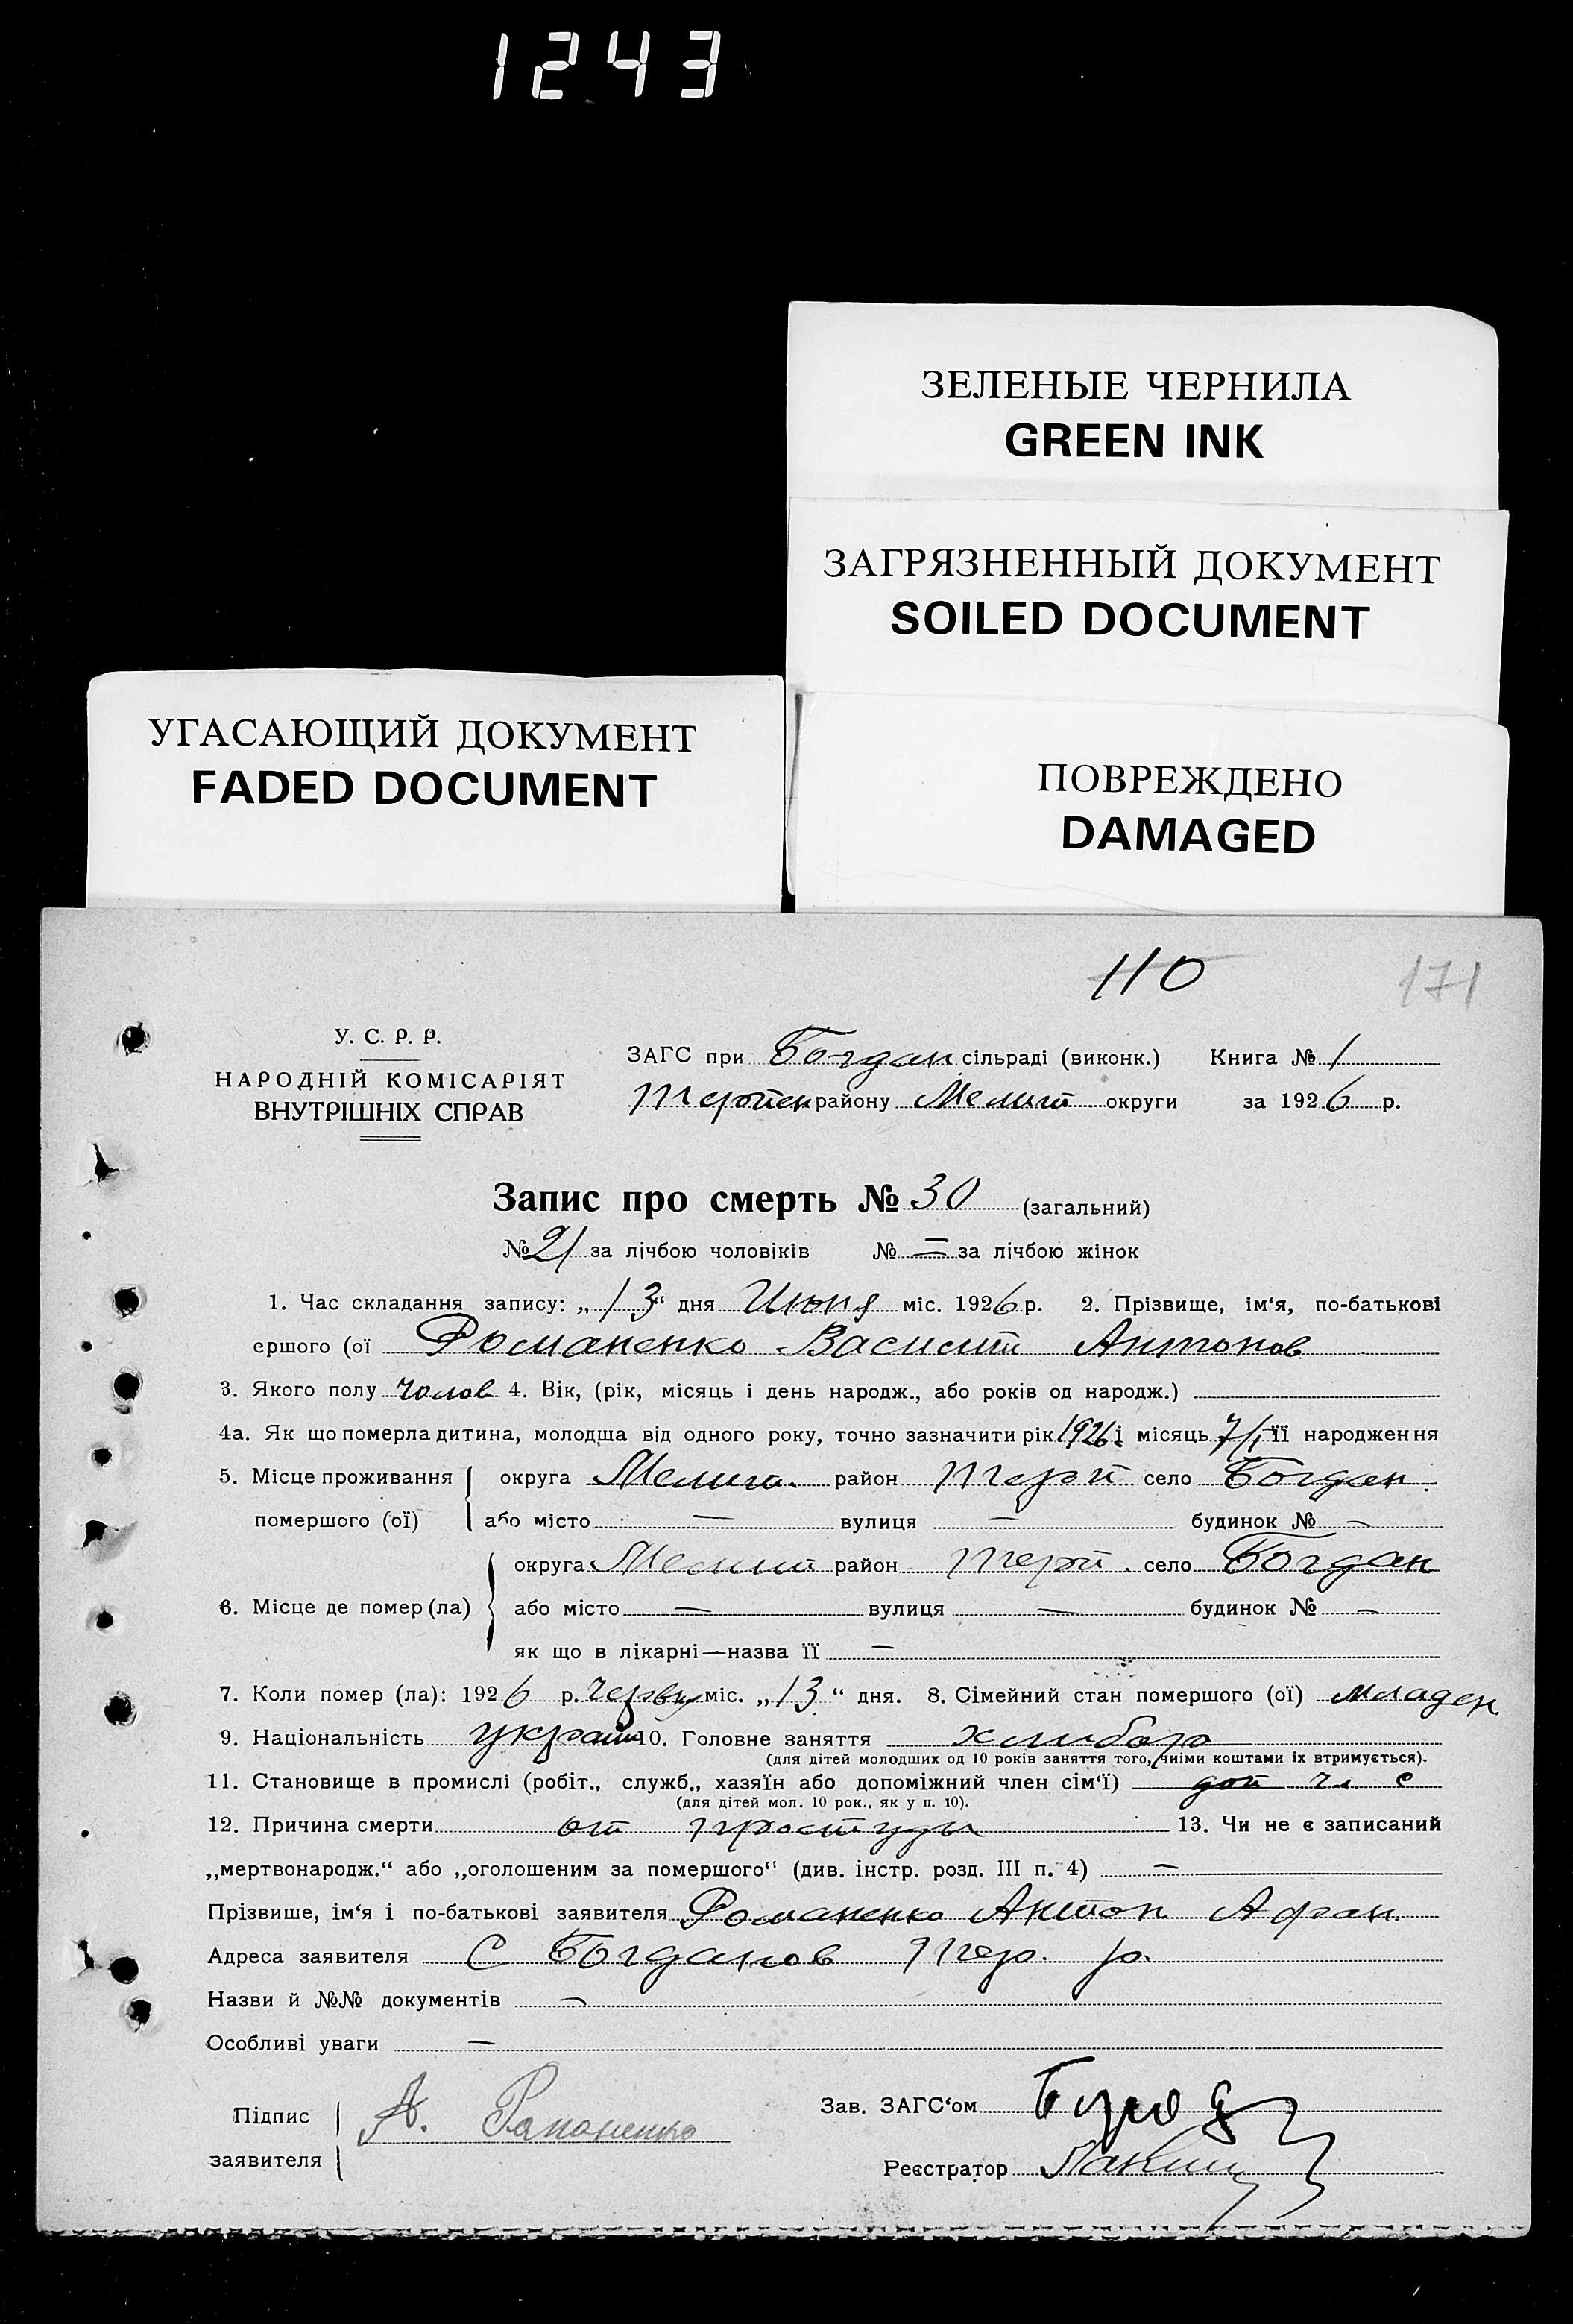 1243
ЗЕЛЕНЫЕ ЧЕРНИЛА
GREEN INK
ЗАГРЯЗНЕННЫЙ ДОКУМЕНТ
SOILED DOCUMENT
УГАСАЮЩИЙ ДОКУМЕНТ
FADED DOCUMENT
ПОВРЕЖДЕНО
DAMAGED
110 171
У. С. Р. Р.
НАРОДНІЙ КОМІСАРІЯТ
ВНУТРІШНІХ СПРАВ
ЗАГС при Богдан сільраді (виконк.) Книга № 1
Терпен району Мелит округи за 1926 р.
Запис про смерть № 30 (загальний)
№ 21 за лічбою чоловіків № — за лічбою жінок
1. Час складання запису: „13“ дня Июня міс. 1926 р. 2. Прізвище, ім‘я, по-батькові
ершого (ої Романенко Василит Антонов
3. Якого полу чолов 4. Вік, (рік, місяць і день народж., або років од народж.)
4а. Як що померла дитина, молодша від одного року, точно зазначити рік 1926 і місяць 7/I її народження
5. Місце проживання округа Мелит. район Терп село Богдан.
помершого (ої) або місто — вулиця — будинок № —
округа Мелит район Терп. село Богдан
6. Місце де помер (ла) або місто — вулиця — будинок № —
як що в лікарні—назва її —
7. Коли помер (ла): 1926 р. червн міс. „13“ дня. 8. Сімейний стан помершого (ої) младен
9. Національність украин 10. Головне заняття хлибор
(для дітей молодших од 10 років заняття того, чиїми коштами їх втримується).
11. Становище в промислі (робіт., служб., хазяїн або допоміжний член сім‘ї) доп чл с
(для дітей мол. 10 рок., як у п. 10).
12. Причина смерти от простуды 13. Чи не є записаний
„мертвонародж.“ або „оголошеним за помершого“ (див. інстр. розд. III п. 4) —
Прізвише, ім‘я і по-батькові заявителя Романенко Антон Афан.
Адреса заявителя С Богданов Тер. р.
Назви й №№ документів —
Особливі уваги —
Підпис
заявителя
А. Романенко
Зав. ЗАГС‘ом
Реєстратор